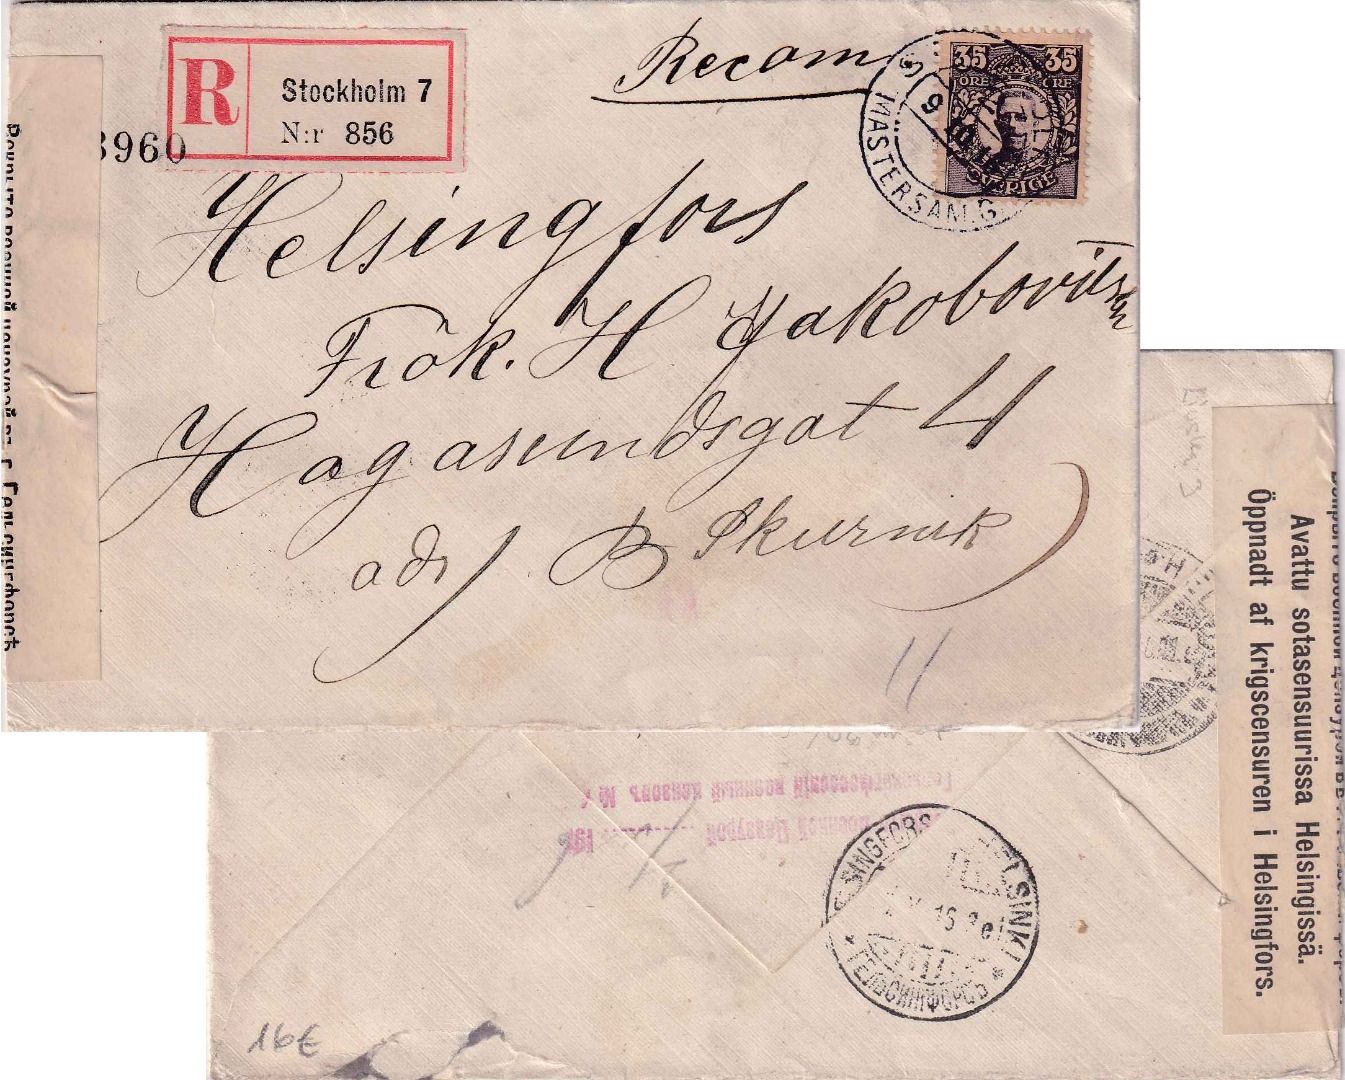 R
Stockholm 7
N:r 856
3960
Recom
35 35
ÖRE ÖRE
SVERIGE
MÄSTERSAM.G.
Helsingfors
Frök. H Jakobovitsch
Hagasundsgat 4
adr B Skurnik
11
Avattu sotasensuurissa Helsingissä.
Öppnadt af krigscensuren i Helsingfors.
военной
HELSINKI
ГЕЛЬСИНГФОРСЪ
16€